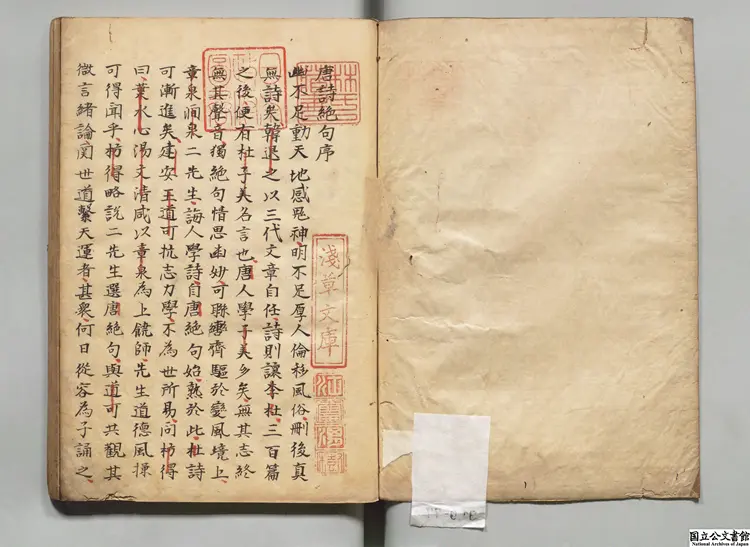 唐詩絶句序
幽不足動天地感鬼神明不足厚人倫移風俗刪後真
無詩矣韓退之以三代文章自任詩則讓李杜三百篇
之後便有杜子美名言也唐人學子美多矣無其志終
無其聲音獨絶句情思幽妙可聯轡齊驅於變風境上
章泉澗泉二先生誨人學詩自唐絶句始熟於此杜詩
可漸進矣建安王道可抗志力學不為世所易問枋得
曰葉水心湯文清咸以章泉為上饒師先生道德風操
可得聞乎枋得略說二先生選唐絶句與道可共觀其
微言緒論関世道繫天運者甚衆何日從容為子誦之
淺草文庫
国立公文書館
National Archives of Japan